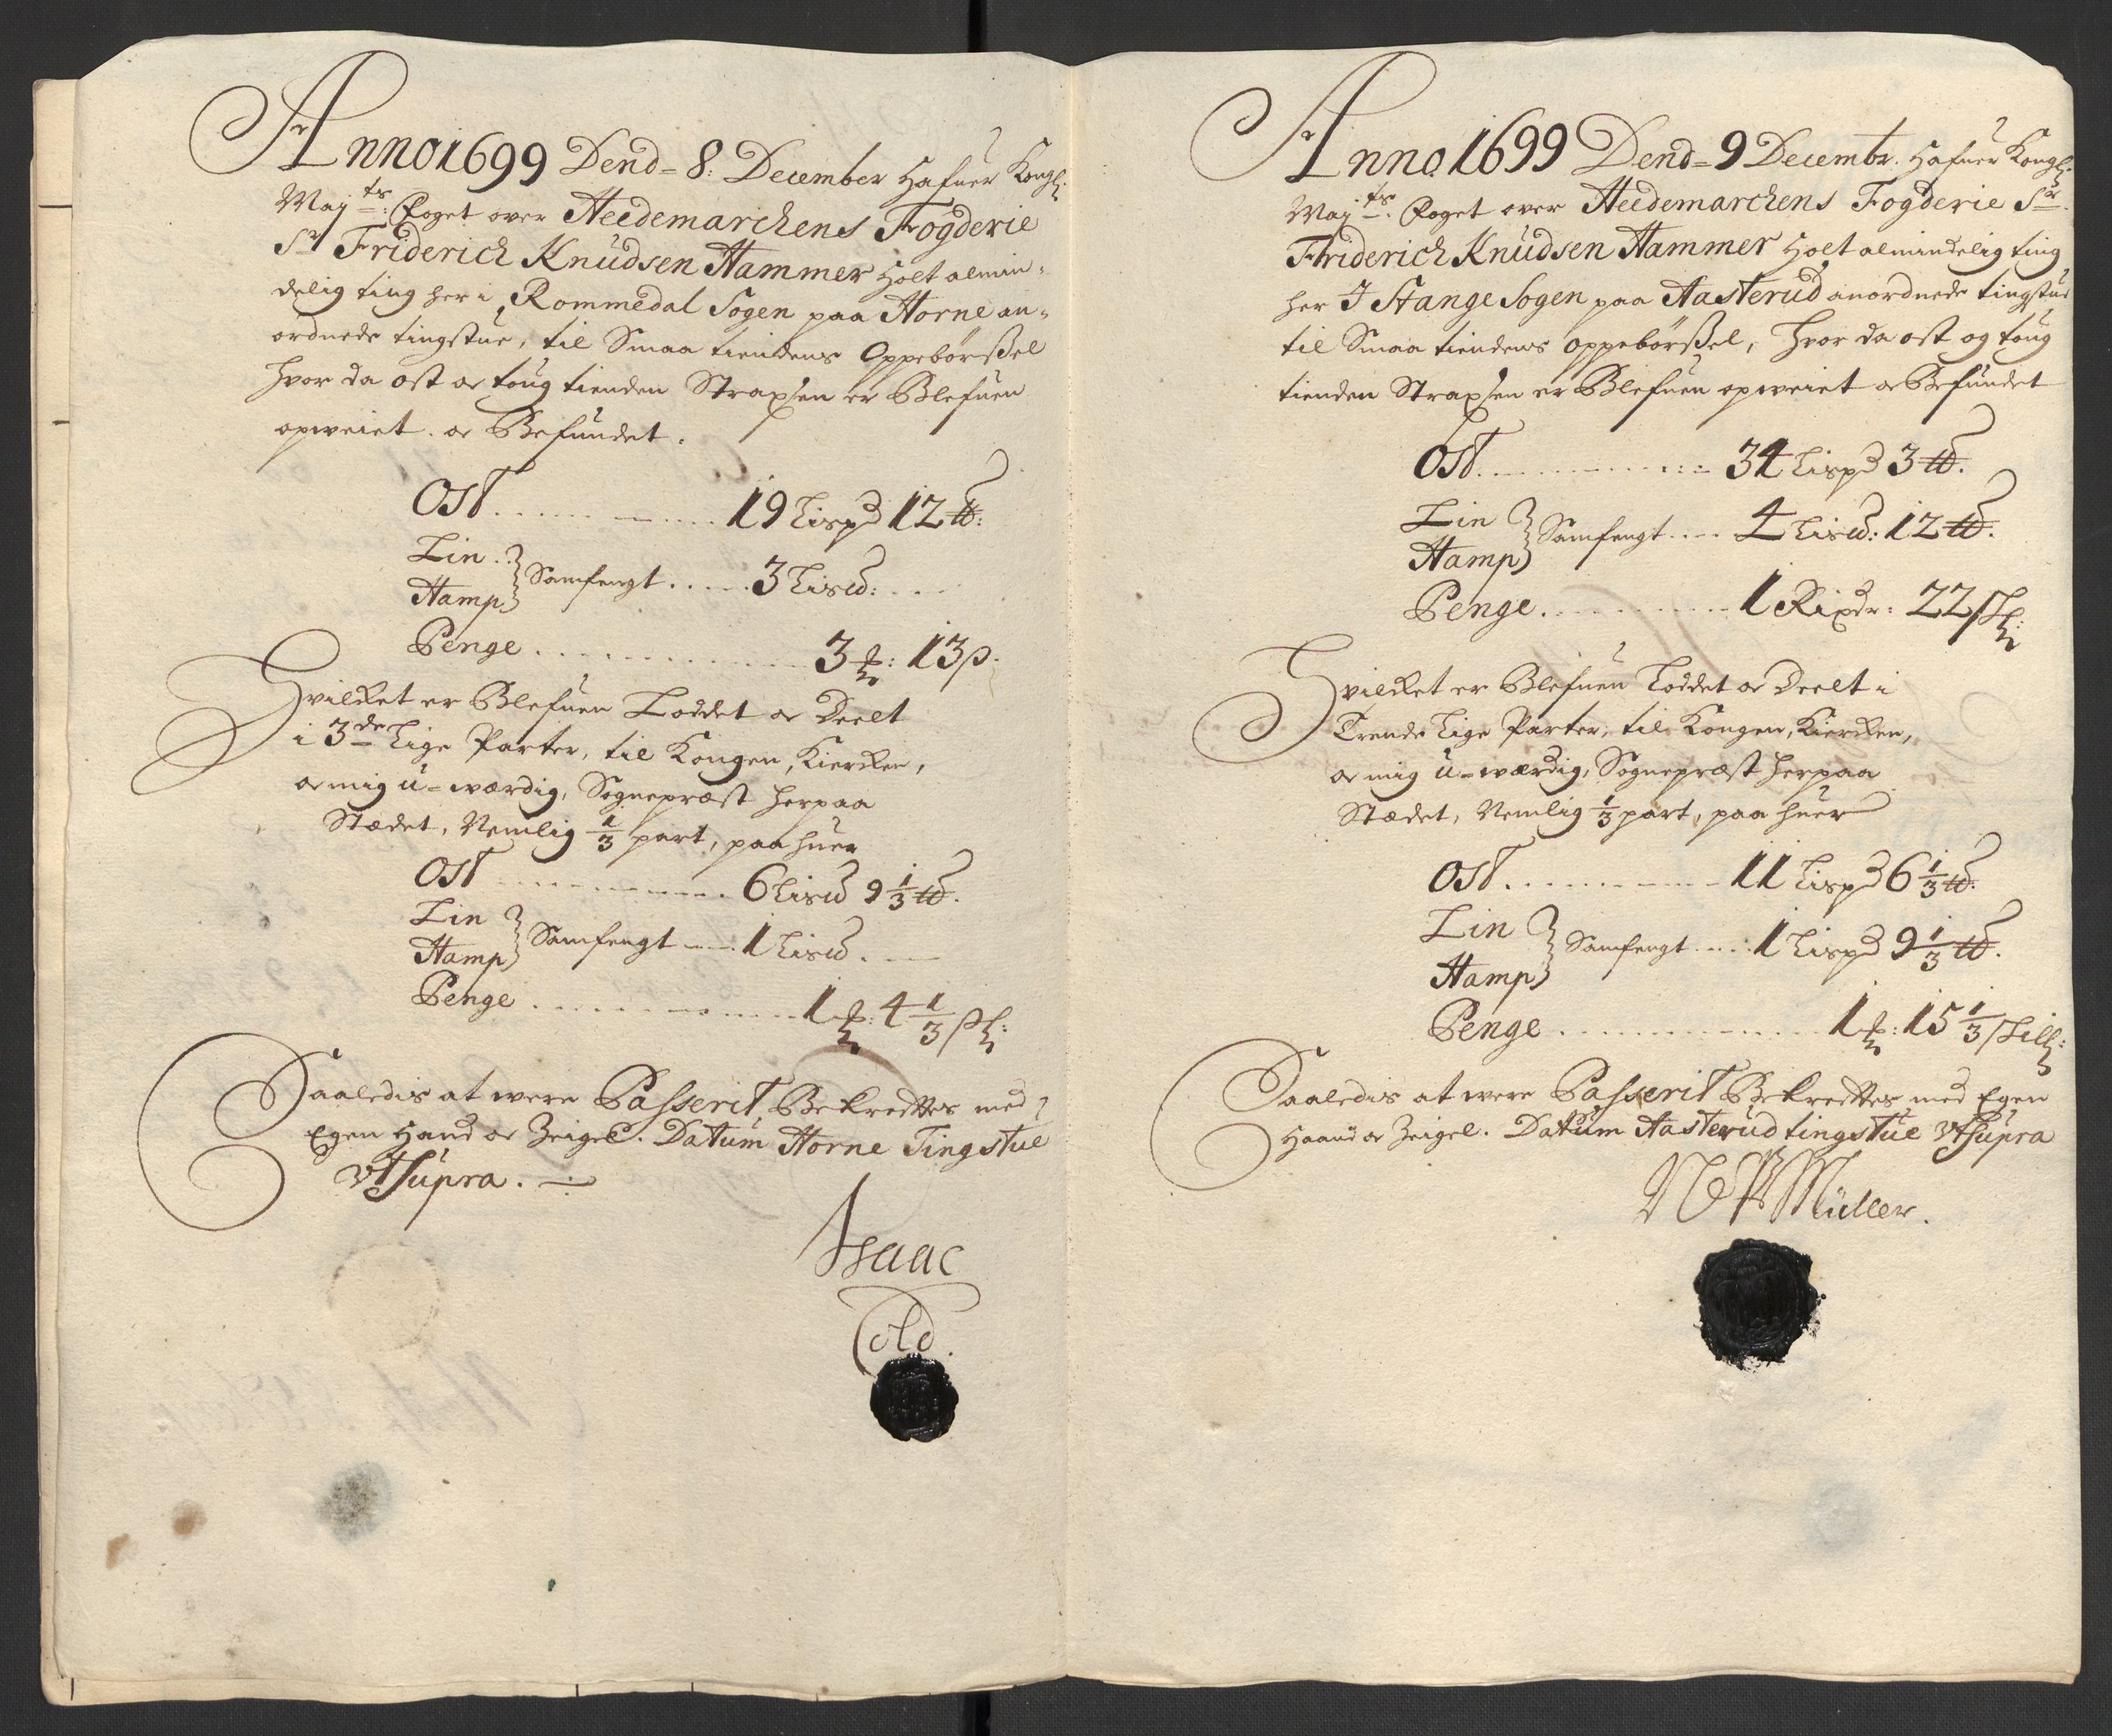 Anno 1699 Dend= 8: December Hafuer Kongl:
Maj:ts: Foget over Heedemarckens Fogderie
Sr Friderich Knudsen Hammer Holt almin=
delig ting her i Rommedal Sogen paa Horne an=
ordnede tingstue, til Smaa tiendens Oppebørßel
hvor da ost oc toug tienden Straxsen er Blefuen
opveiet. oc Befundet.
Ost ........ 19 Lispd 12 ℔:
Lin
Hamp } Samfengt ..... 3 Lis℔: ...
Penge ............ 3 Rd: 13 ß.
Hvilcket er Blefuen Loddet oc Deelt
i 3de Lige Parter, til Kongen, Kiercken,
oc mig u=værdig, Sognepræst herpaa
Stædet, Nemlig 1/3 part, paa huer
Ost ......... 6 Lis℔ 9 1/3 ℔.
Lin
Hamp } Samfengt ---- 1 Lis℔.
Penge .......... 1 Rd: 4 1/3 ßl:
Saaledis at were Passerit, Bekreftes med
Egen Haand oc Zeigel. Datum Horne Tingstue
Vt Supra.
Isaac
Cold.
Anno 1699 Dend= 9 Decembr. Hafuer Kongl:
Maj:ts: Foget over Heedemarckens Fogderie Sr.
Friderich Knudsen Hammer Holt almindelig ting
her I Stange Sogen paa Aasterud anordnede tingstue
til Smaa tiendens oppebørßel, hvor da ost og toug
tienden Straxsen er Blefuen opveiet oc Befundet
Ost ............ 34 Lispd 3 ℔.
Lin
Hamp } Samfengt .... 4 Lis℔: 12 ℔.
Penge .......... 1 Rixdr: 22 ßl:
Hvilcket er Blefuen Loddet oc Deelt i
Trende Lige Parter, til Kongen, Kiercken,
oc mig u=værdig, Sognepræst herpaa
Stædet, Nemlig 1/3 part, paa huer
Ost .......... 11 Lispd 6 1/3 ℔.
Lin
Hamp } Samfengt .... 1 Lispd 9 1/3 ℔.
Penge ............ 1 Rd: 15 1/3 skill:
Saaledis at were Passerit Bekreftes med Egen
Haand oc Zeigel. Datum Aasterud tingstue Vt Supra
Müller.